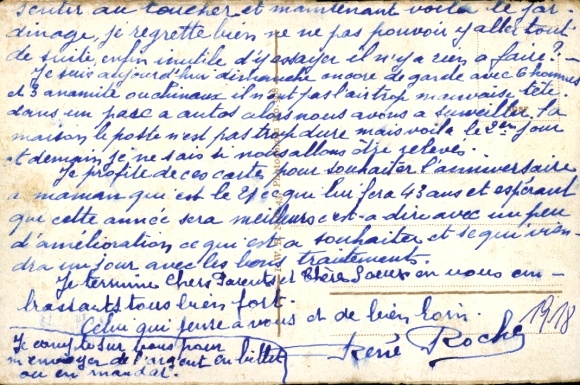 sentir au toucher et maintenant voila le jar
dinage, je regrette bien ne ne pas pouvoir y aller tout
de suite, enfin inutile d'y essayer il n'y a rien a faire? -
Je suis aujourd'hui dimanche encore de garde avec 6 hommes
et 3 anamite ou chinaux il n'ont pas l'ais trop mauvaise tête.
dans un parc a autos alors nous avons a surveiller la
maison le poste n'est pas trop dure mais voila le 2em jour
et demain je ne sais si nous allons être relevés.
Je profite de ces cartes pour souhaiter l'anniversaire
a maman qui est le 29 ce qui lui fera 43 ans et espérant
que cette année sera meilleurs c'est-a dire avec un peu
d'amélioration ce qui est a souhaiter et se qui vien-
dra un jour avec les bons traitements.
Je termine Chers Parents et Frère Soeurs en vous em-
brassants tous bien fort.
Celui qui pense a vous et de bien loin.
René Roche
1918
Je compte sur vous pour
m'envoyer de l'argent en billet
ou en mandat.